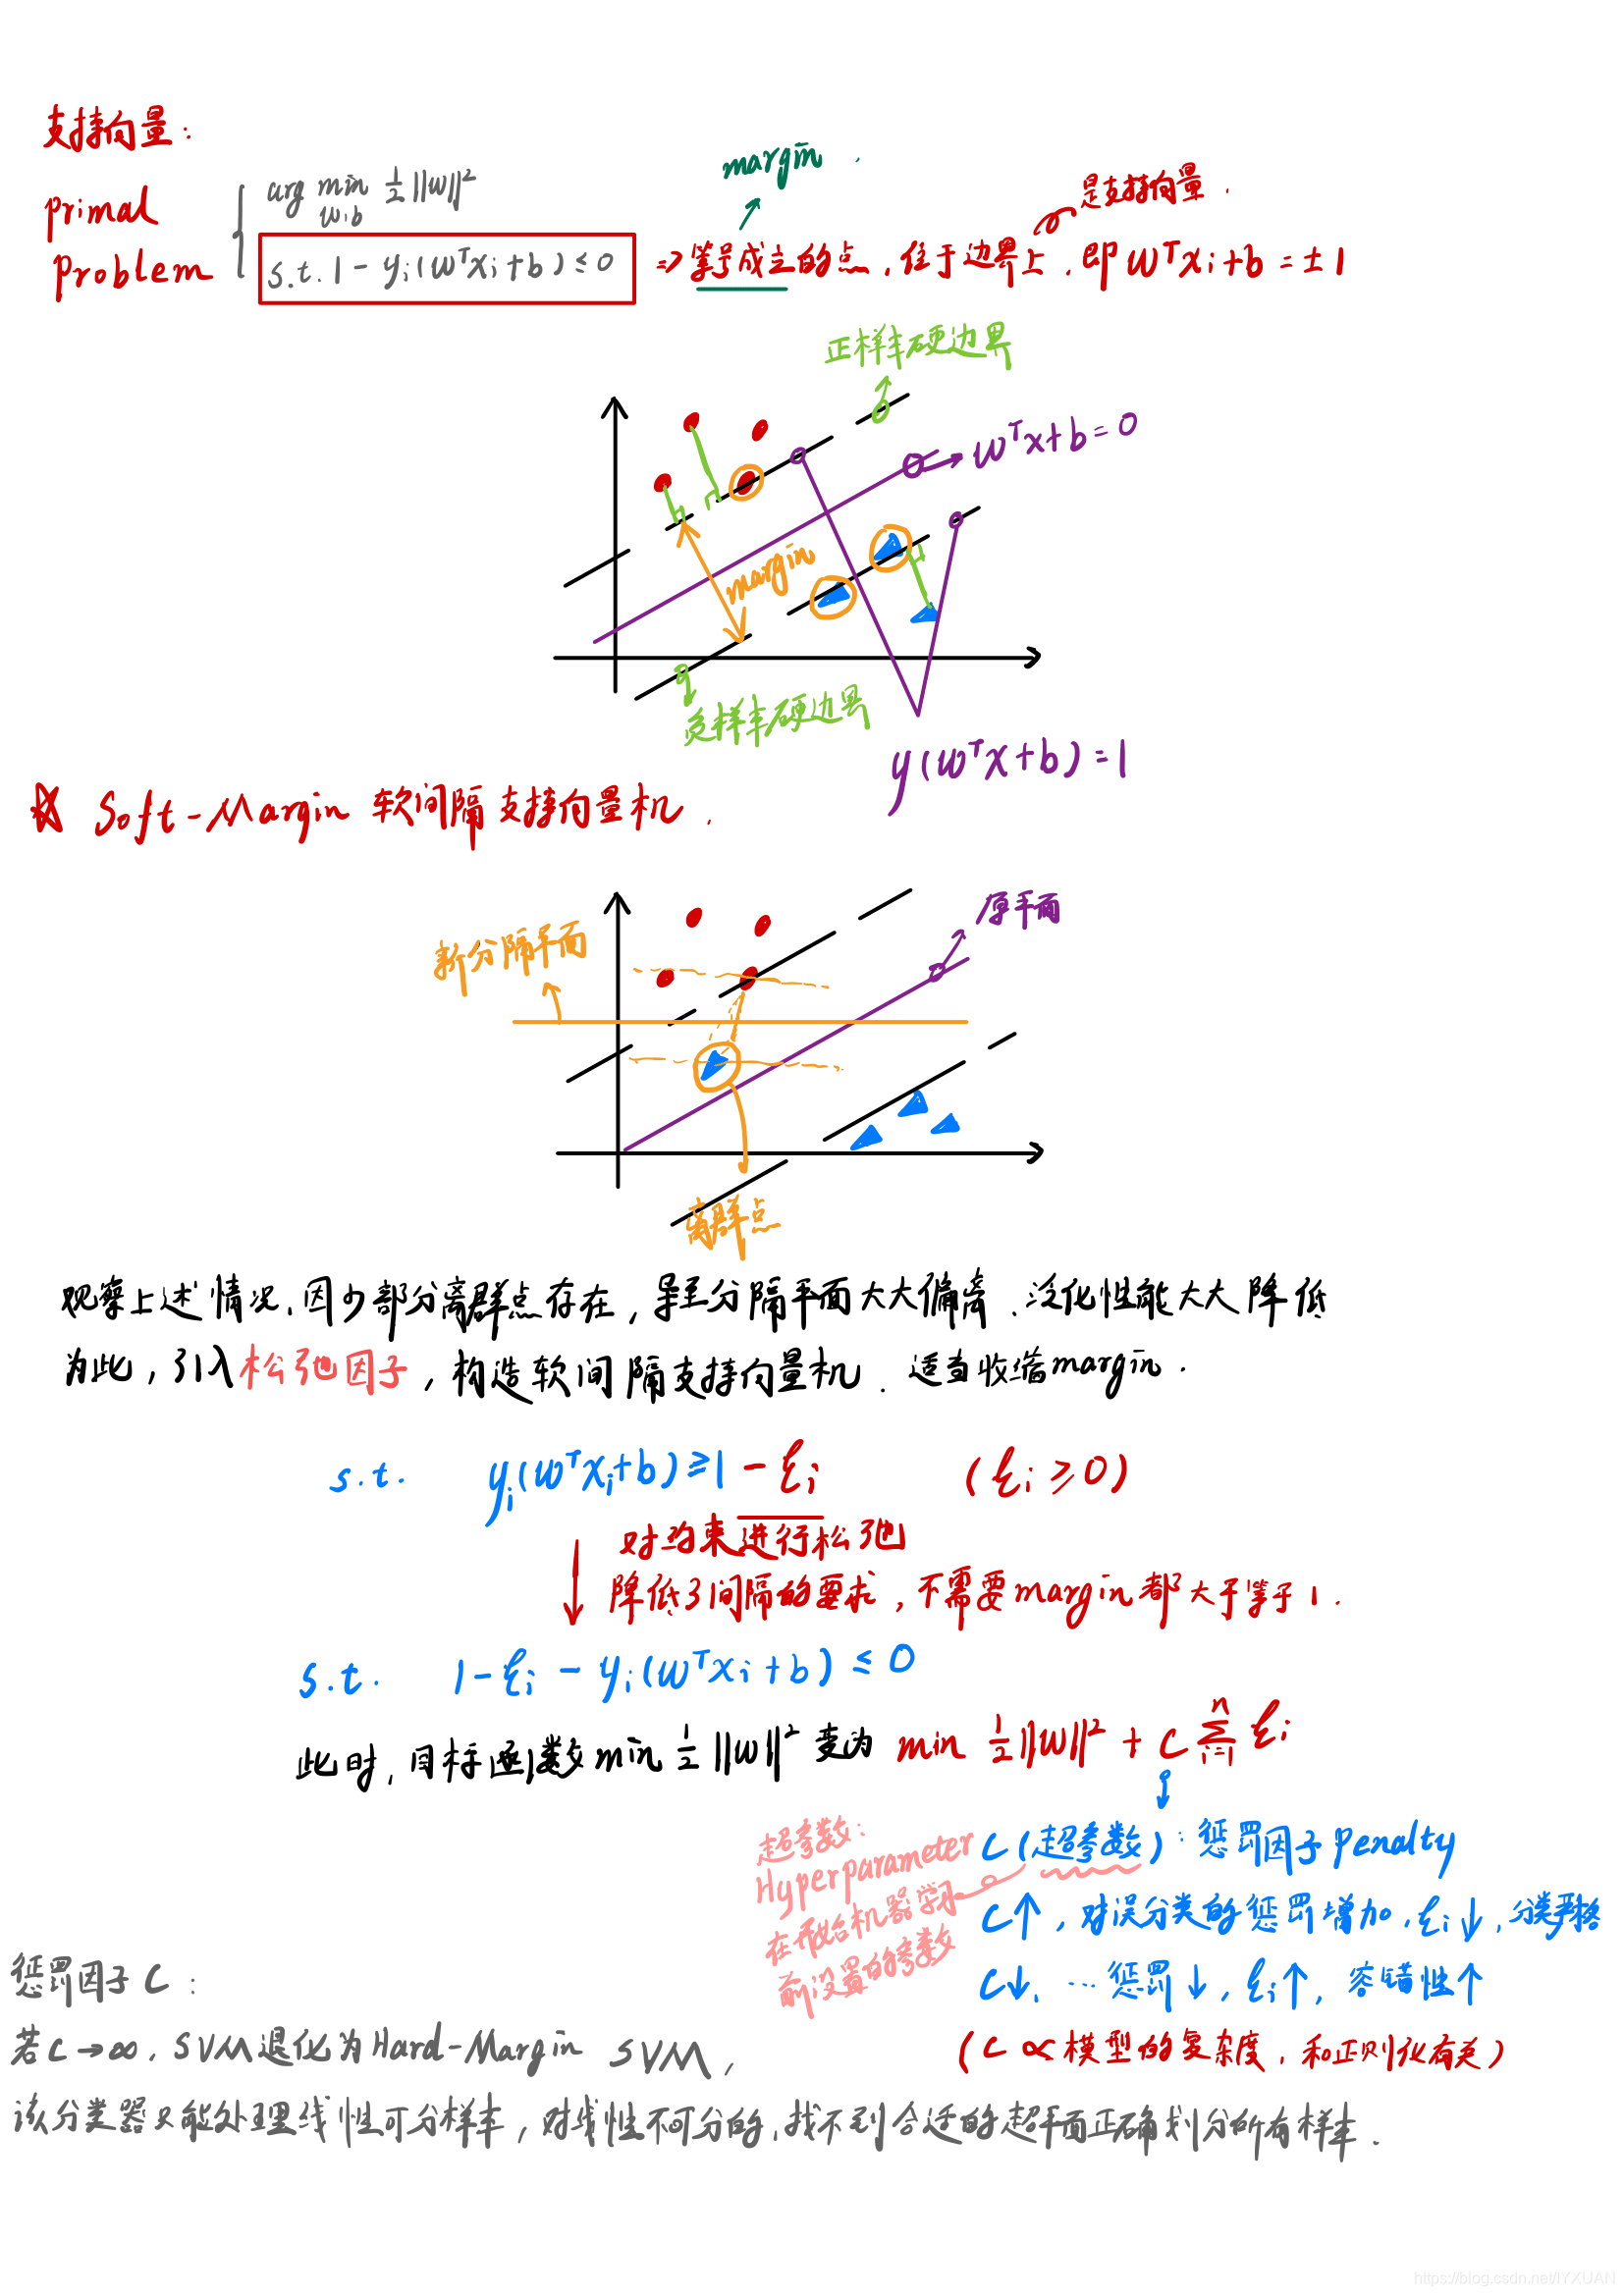 支持向量:
margin.
是支持向量.
primal
problem
arg min 1/2 ||w||²
w,b
s.t. 1 - yᵢ(wᵀxᵢ+b) ≤ 0
=> 等号成立的点, 位于边界上, 即 wᵀxᵢ+b = ±1
正样本硬边界
wᵀx+b=0
margin
负样本硬边界
y(wᵀx+b)=1
☆ Soft-Margin 软间隔支持向量机.
原平面
新分隔平面
离群点
观察上述情况, 因少部分离群点存在, 导至分隔平面大大偏离, 泛化性能大大降低
为此, 引入松弛因子, 构造软间隔支持向量机. 适当收缩margin.
s.t. yᵢ(wᵀxᵢ+b) ≥ 1 - ξᵢ (ξᵢ ≥ 0)
对约束进行松弛
降低了间隔的要求, 不需要margin都大于等于1.
s.t. 1 - ξᵢ - yᵢ(wᵀxᵢ+b) ≤ 0
此时, 目标函数 min 1/2 ||w||² 变为 min 1/2 ||w||² + C Σⁿᵢ₌₁ ξᵢ
超参数:
Hyperparameter
在开始机器学习
前设置的参数
C(超参数): 惩罚因子 Penalty
C↑, 对误分类的惩罚增加, ξᵢ↓, 分类严格
C↓, … 惩罚↓, ξᵢ↑, 容错性↑
(C ∝ 模型的复杂度, 和正则化有关)
惩罚因子 C:
若 C→∞, SVM退化为Hard-Margin SVM,
该分类器只能处理线性可分样本, 对线性不可分的, 找不到合适的超平面正确划分所有样本.
https://blog.csdn.net/IYXUAN